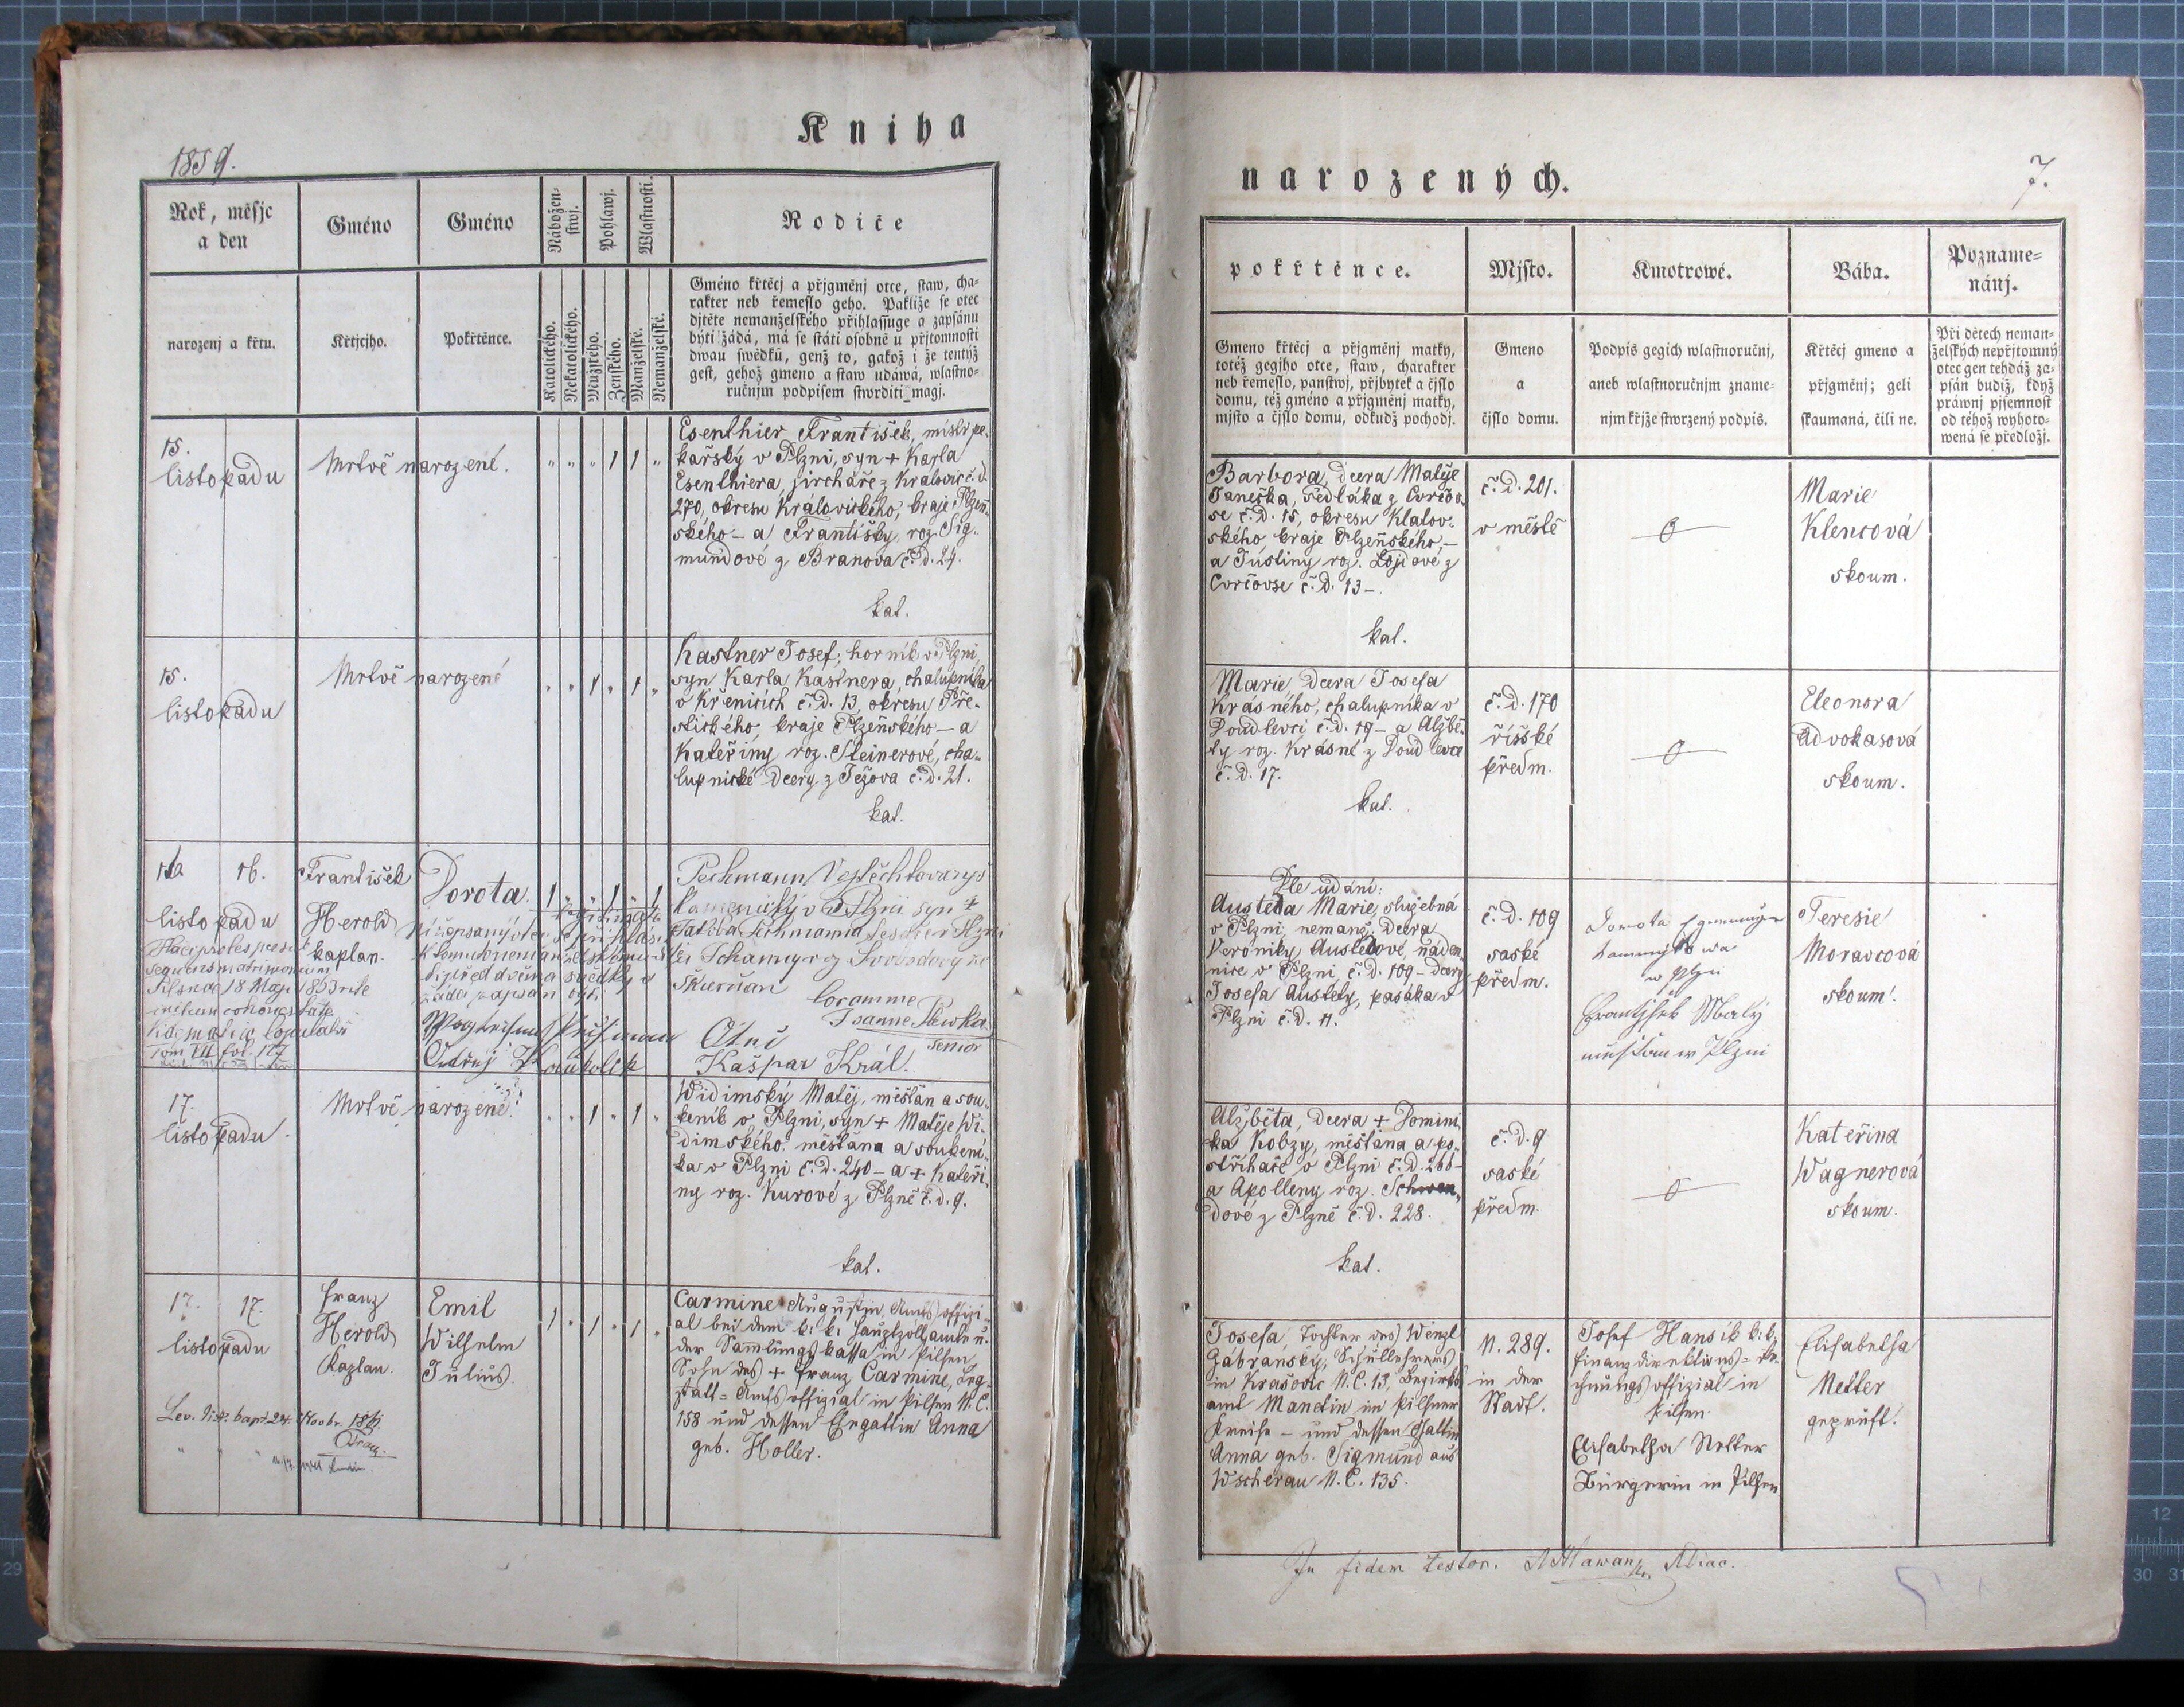 Kniha
1859.
Rok, měsjc
a den
Gméno
Gméno
Nábožen-
stwj.
Pohlawj.
Wlastnosti.
Rodiče
narozenj a křtu.
Křtjcjho.
Pokřtěnce.
Katolického.
Nekatolického.
Mužského.
Ženského.
Manželské.
Nemanželské.
Gméno křtěcj a přjgměnj otce, staw, cha-
rakter neb řemeslo geho. Pakliže se otec
djtěte nemanželského přihlassuge a zapsánu
býti žádá, má se státi osobně u přjtomnosti
dwau swědků, genž to, gakož i že tentýž
gest, gehož gmeno a staw udáwá, wlastno-
ručnjm podpisem stwrditi magj.
15.
listopadu
Mrtvě narozené.
" " " 1 1 "
Esenthier František, mistr pe-
kařský v Plzni, syn + Karla
Esenthiera, jircháře z Kralovic č. d.
270, okresu Královického, kraje Plzeň-
ského – a Františky roz. Sig-
mundové z Branova č. d. 24.
kat.
15.
listopadu
Mrtvě narozené
" " 1 " 1 "
Kastner Josef, horník v Plzni,
syn Karla Kastnera, chalupníka
v Křenicích č. d. 13, okresu Pře-
stického, kraje Plzeňského – a
Kateřiny roz. Steinerové, cha-
lupnické dcery z Ježova č. d. 21.
kat.
16.
listopadu
František
Herold
kaplan.
Dorota.
1 " " 1 " 1
Pechmann Vojtěch tovaryš
kamenický v Plzni syn +
Skurňan
coram me
Senior
Otni
Kašpar Král.
Níže psaný otec se přihlásil
18 Maji 1863 rite
Tom VII fol. 127
17.
listopadu.
Mrtvě narozené.
" " 1 " 1 "
Widimský Matěj, měšťan a sou-
keník v Plzni, syn + Matěje Wi-
dimského, měšťana a soukení-
ka v Plzni č. d. 240 – a + Kateři-
ny roz. Kurové z Plzně č. d. 9.
kat.
17. 17.
listopadu
Franz
Herold
Kaplan.
Emil
Wilhelm
Julius.
1 " 1 " 1 "
Carmine Augustin, Amtsoffizi-
al bei dem k. k. Hauptzollamte u.
der Sammlungskassa in Pilsen,
Sohn des + Franz Carmine, Leg-
statt-Amtsoffizial in Pilsen N. C.
158 und dessen Ehegattin Anna
geb. Holler.
narozených.
7.
pokřtěnce.
Mjsto.
Kmotrowé.
Bába.
Pozname-
nánj.
Gmeno křtěcj a přjgměnj matky,
totéž gegjho otce, staw, charakter
neb řemeslo, panstwj, přjbytek a čjslo
domu, též gméno a přjgměnj matky,
mjsto a čjslo domu, odkudž pochodj.
Gmeno
a
čjslo domu.
Podpis gegich wlastnoručnj,
aneb wlastnoručnjm zname-
njm křjže stwrzený podpis.
Křtěcj gmeno a
přjgměnj; geli
skaumaná, čili ne.
Při dětech neman-
želských nepřjtomný
otec gen tehdáž za-
psán budiž, když
práwnj pjsemnost
od téhož wyhoto-
wená se předložj.
Barbora, dcera Matěje
Janečka, sedláka z Cvrčov-
se č. d. 15, okresu Klatov-
ského kraje Plzeňského, –
a Justiny roz. Lojdové z
Cvrčovse č. d. 13 –.
kat.
č. d. 201.
v městě
Marie
Klencová
skoum.
Marie, dcera Josefa
Krásného, chalupníka v
Doudlevci č. d. 19 – a Alžbě-
ty roz. Krásné z Doudlevce
č. d. 17.
kat.
č. d. 170
říšské
předm.
Eleonora
Advokasová
skoum.
Dle udání:
Austeda Marie, služebná
v Plzni, nemanž. dcera
Veroniky Austedové, náden-
nice v Plzni č. d. 109 – dcery
Josefa Austety, pasáka v
Plzni č. d. 11.
č. d. 109
saské
předm.
Dorota
w Plzni
Frantjssek Malý
w Plzni
Teresie
Moravcová
skoum.
Alžběta, dcera + Domini-
ka Kobzy, měšťana a po-
střihače v Plzni č. d. 266 –
a Apolleny roz. Schwen-
dové z Plzně č. d. 228.
kat.
č. d. 9
saské
předm.
Kateřina
Wagnerová
skoum.
Josefa, Tochter des Wenzl
Gabransky, Schullehrers
in Krašovic N. C. 13, Bezirks-
amt Manetin im Pilsner
Kreise – und dessen Gattin
Anna geb. Sigmund aus
Wscherau N. C. 135.
N. 289.
in der
Stadt.
Josef Hansik k. k.
Finanzdirektions-Re-
chnungsoffizial in
Pilsen.
Elisabetha Netter
Bürgerin in Pilsen
Elisabetha
Netter
geprüft.
In fidem testor.